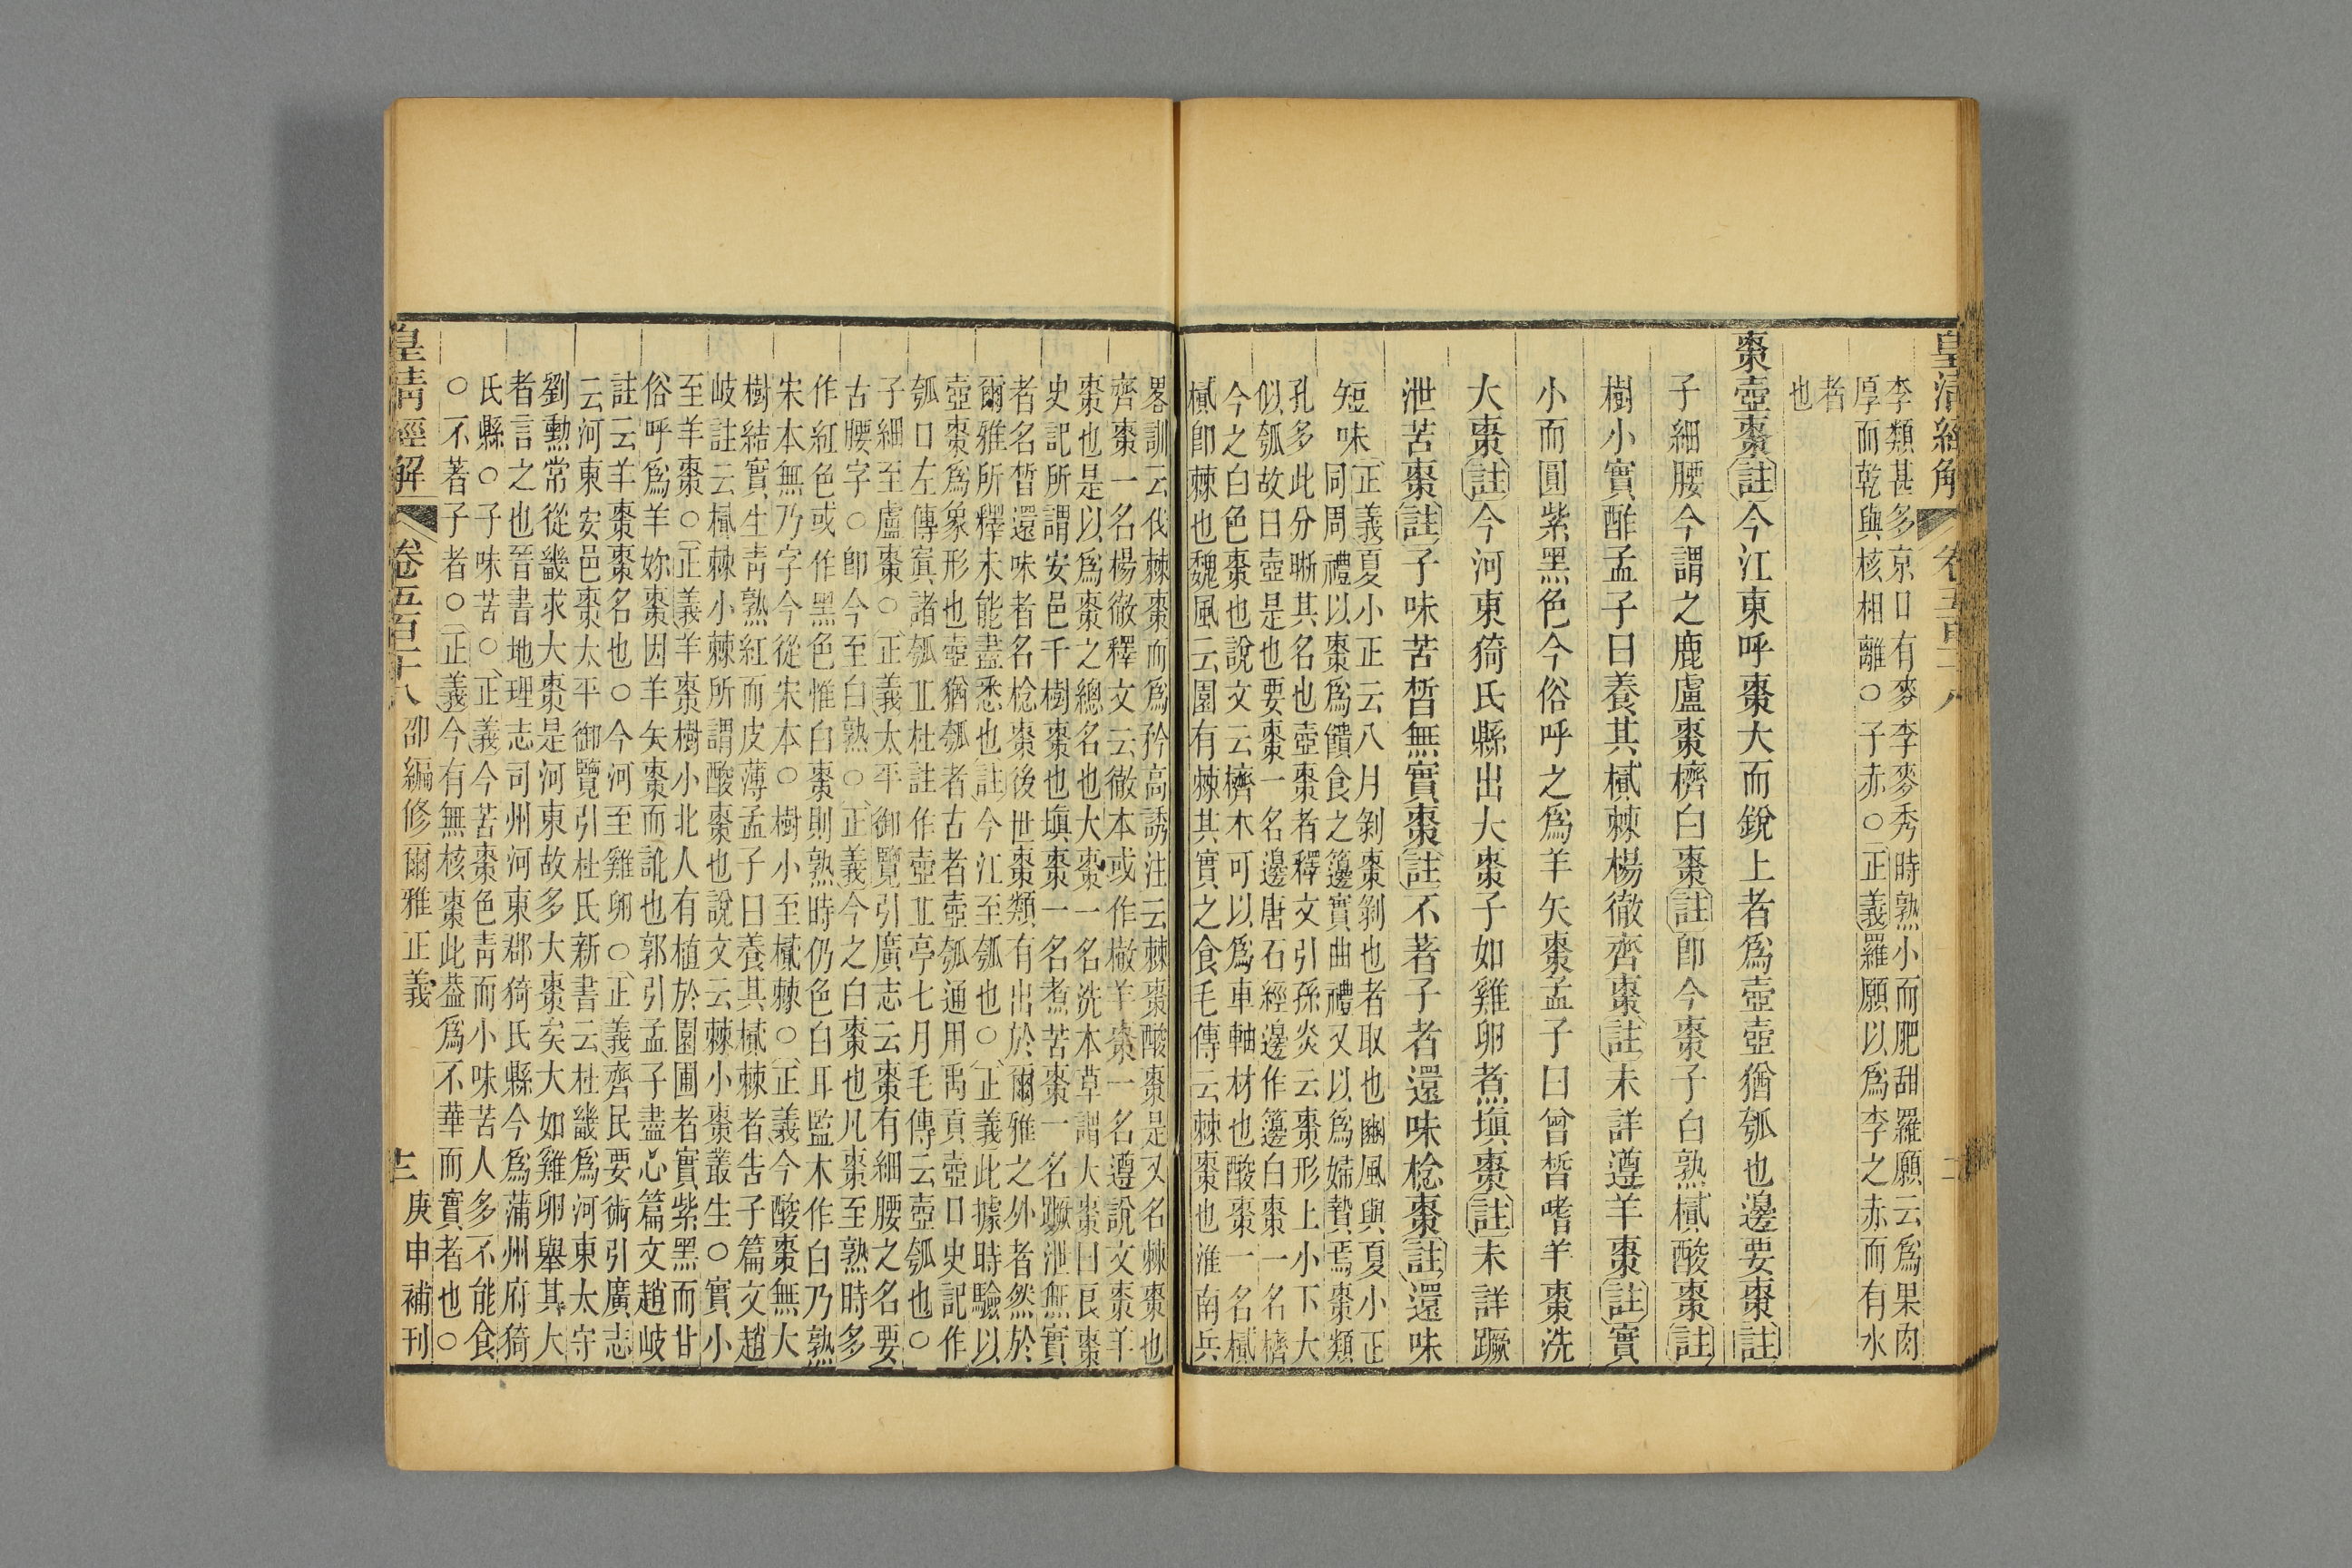 皇清經解 卷五百十八
李類甚多京口有麥李麥秀時熟小而肥甜羅願云爲果肉
厚而乾與核相離○子赤○正義羅願以爲李之赤而有水
者
也
棗壺棗註今江東呼棗大而銳上者爲壺壺猶瓠也邊要棗註
子細腰今謂之鹿盧棗櫅白棗註卽今棗子白熟樲酸棗註
樹小實酢孟子曰養其樲棘楊徹齊棗註未詳遵羊棗註實
小而圓紫黑色今俗呼之爲羊矢棗孟子曰曾皙嗜羊棗洗
大棗註今河東猗氏縣出大棗子如雞卵煮塡棗註未詳蹶
泄苦棗註子味苦皙無實棗註不著子者還味棯棗註還味
短味
正義夏小正云八月剝棗剝也者取也豳風與夏小正
同周禮以棗爲饋食之籩實曲禮又以爲婦贄焉棗類
孔多此分晰其名也壺棗者釋文引孫炎云棗形上小下大
似瓠故曰壺是也要棗一名邊唐石經邊作籩白棗一名櫅
今之白色棗也說文云櫅木可以爲車軸材也酸棗一名樲
樲卽棘也魏風云園有棘其實之食毛傳云棘棗也淮南兵
畧訓云伐棘棗而爲矜高誘注云棘棗酸棗是又名棘棗也
齊棗一名楊徹釋文云徹本或作㯙羊棗一名遵說文棗羊
棗也是以爲棗之總名也大棗一名洗本草謂大棗曰良棗
史記所謂安邑千樹棗也塡棗一名煮苦棗一名蹶泄無實
者名皙還味者名棯棗後世棗類有出於爾雅之外者然於
爾雅所釋未能盡悉也註今江至瓠也○正義此據時驗以
壺棗爲象形也壺猶瓠者古者壺瓠通用禹貢壺口史記作
瓠口左傳寘諸瓠丘杜註作壺丘亭七月毛傳云壺瓠也○
子細至盧棗○正義太平御覽引廣志云棗有細腰之名要
古腰字○卽今至白熟○正義今之白棗也凡棗至熟時多
作紅色或作黑色惟白棗則熟時仍色白耳監木作白乃熟
宋本無乃字今從宋本○樹小至樲棘○正義今酸棗無大
樹結實生靑熟紅而皮薄孟子曰養其樲棘者告子篇文趙
岐註云樲棘小棘所謂酸棗也說文云棘小棗叢生○實小
至羊棗○正義羊棗樹小北人有植於園圃者實紫黑而甘
俗呼爲羊妳棗因羊矢棗而訛也郭引孟子盡心篇文趙岐
註云羊棗棗名也○今河至雞卵○正義齊民要術引廣志
云河東安邑棗太平御覽引杜氏新書云杜畿爲河東太守
劉勳常從畿求大棗是河東故多大棗矣大如雞卵舉其大
者言之也晉書地理志司州河東郡猗氏縣今爲蒲州府猗
氏縣○子味苦○正義今苦棗色靑而小味苦人多不能食
○不著子者○正義今有無核棗此葢爲不華而實者也○
皇清經解 卷五百十八 邵編修爾雅正義 二 庚申補刊